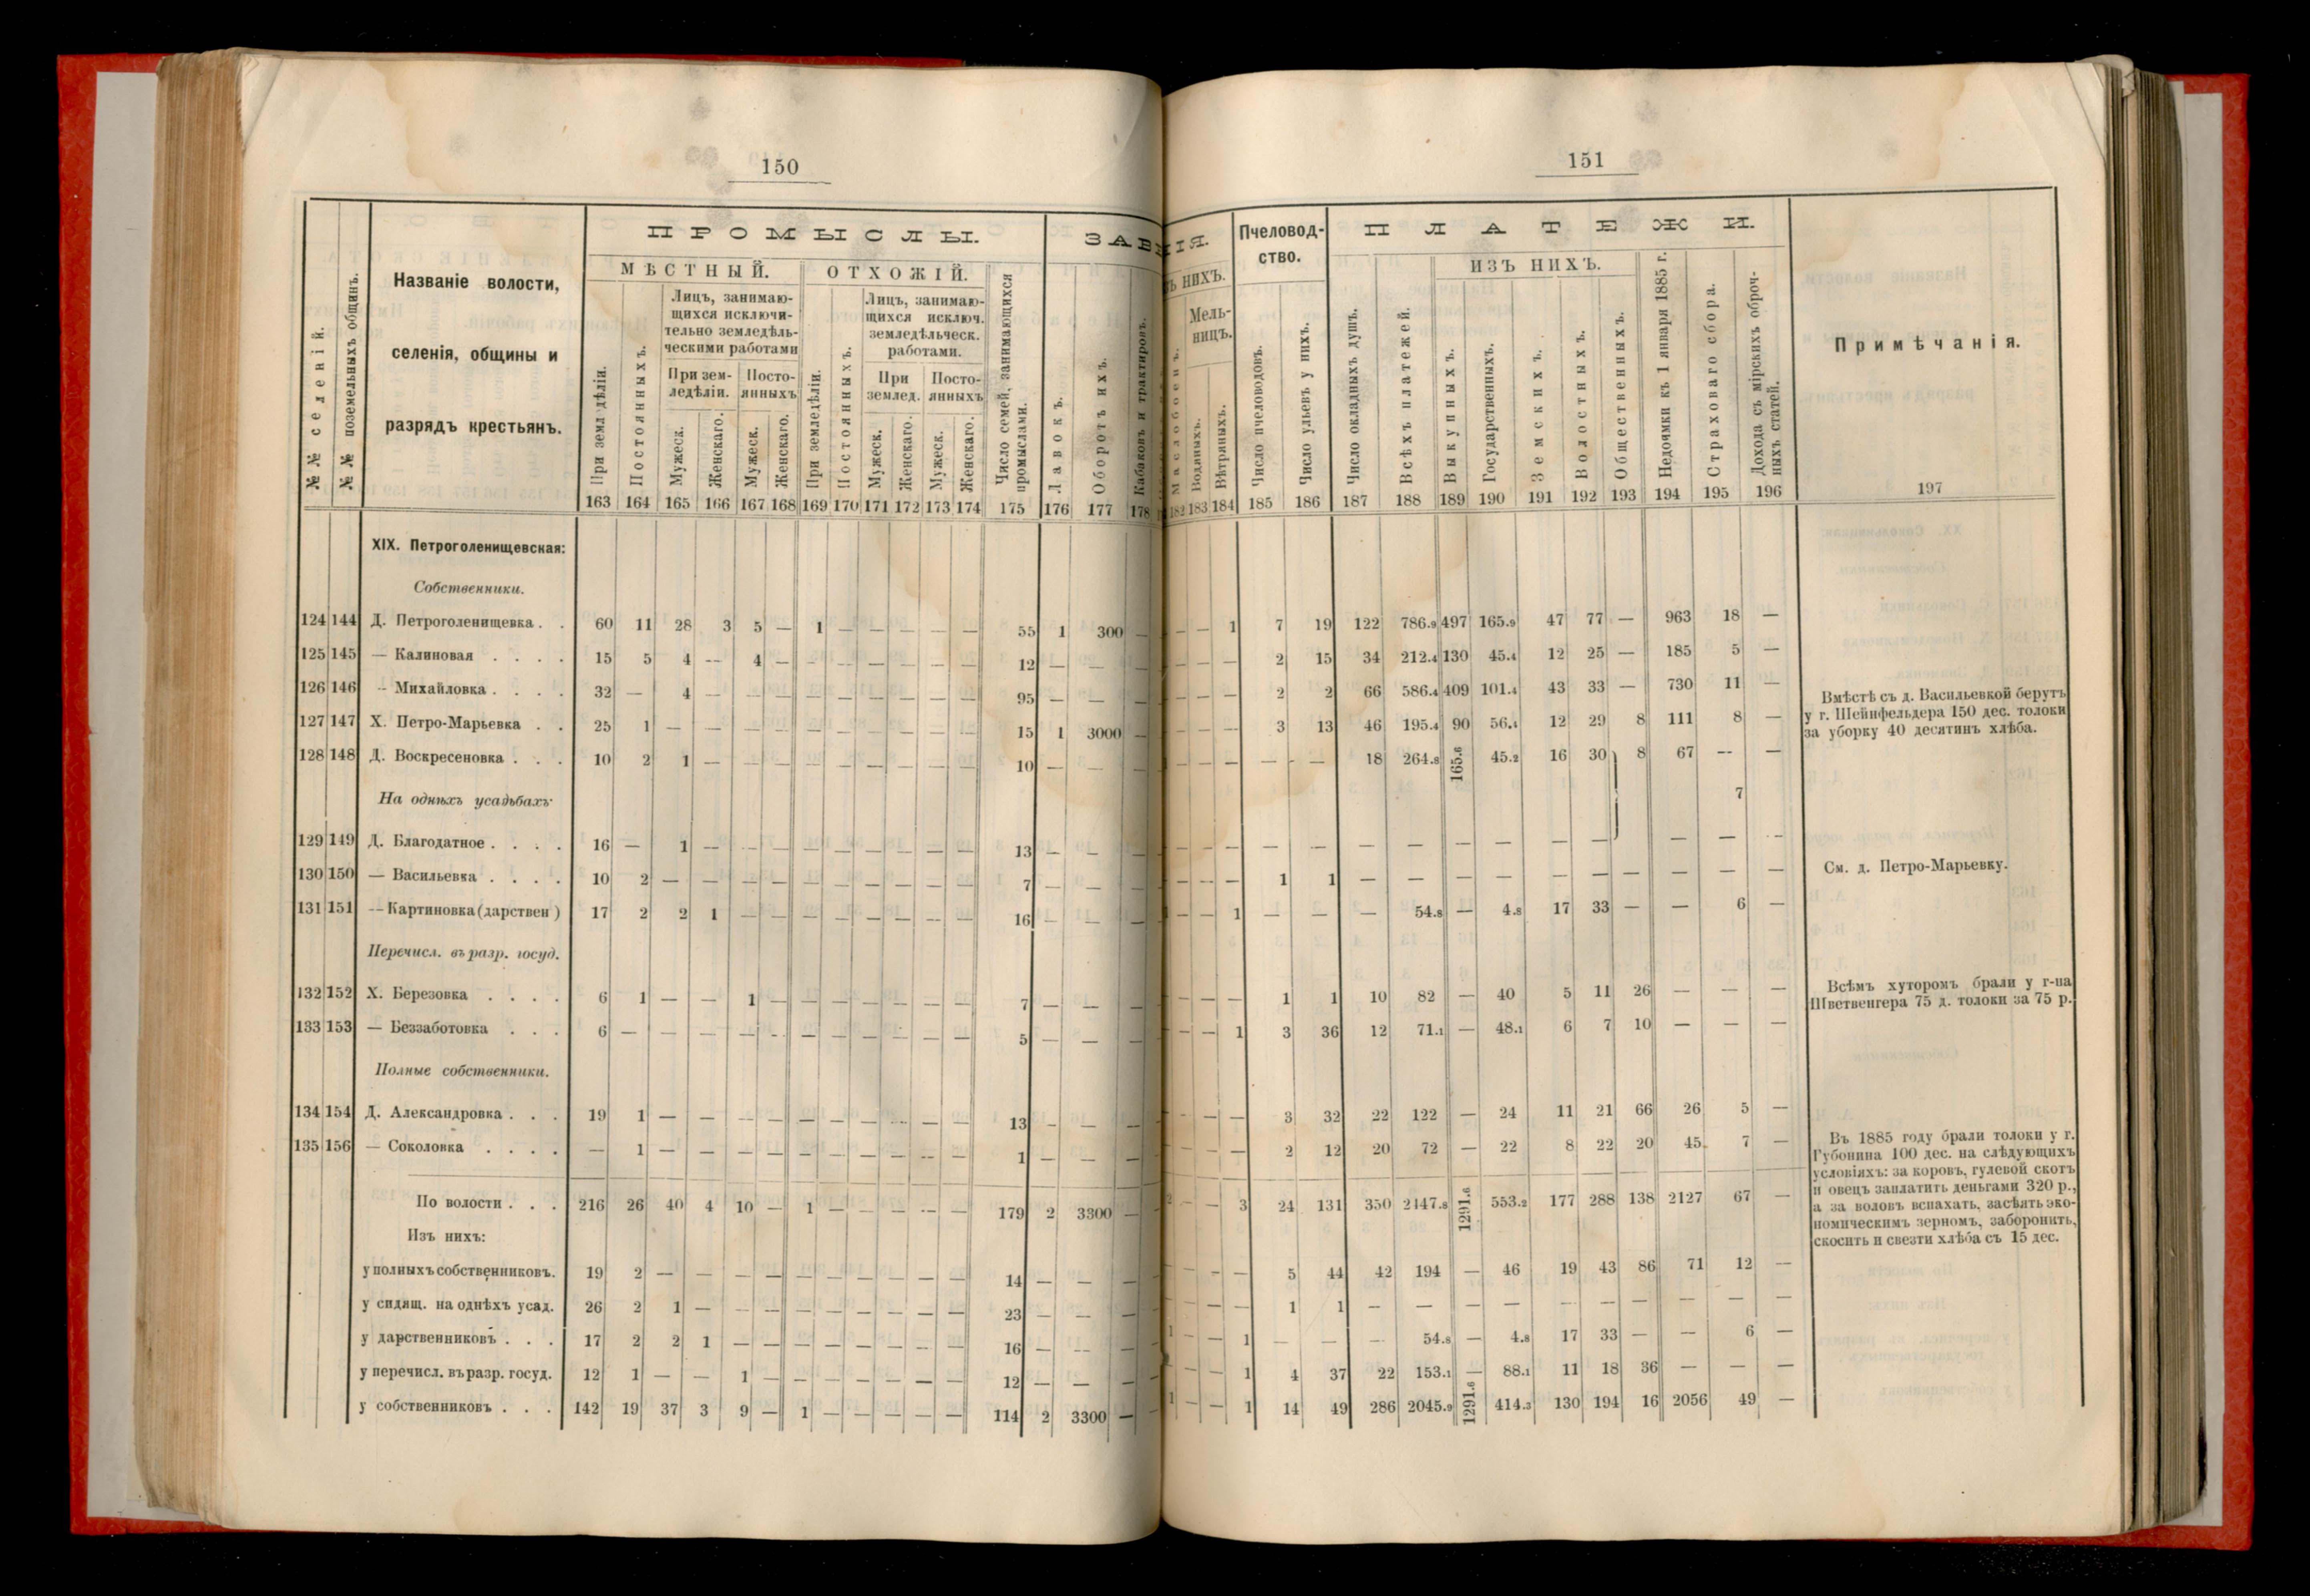 150
ПРОМЫСЛЫ.
ЗАВ
МѢСТНЫЙ.
ОТХОЖІЙ.
№№ селеній.
№№ поземельныхъ общинъ.
Названіе волости,
селенія, общины и
разрядъ крестьянъ.
При земледѣліи.
Постоянныхъ.
Лицъ, занимаю-
щихся исключи-
тельно земледѣль-
ческими работами
При зем-
ледѣліи.
Посто-
янныхъ
Мужеск.
Женскаго.
Мужеск.
Женскаго.
При земледѣліи.
Постоянныхъ.
Лицъ, занимаю-
щихся исключ.
земледѣльческ.
работами.
При
землед.
Посто-
янныхъ
Мужеск.
Женскаго.
Мужеск.
Женскаго.
Число семей, занимающихся
промыслами.
Лавокъ.
Оборотъ ихъ.
Кабаковъ и трактировъ.
163 164 165 166 167 168 169 170 171 172 173 174 175 176 177 178
XIX. Петроголенищевская:
Собственники.
124 144 Д. Петроголенищевка . . 60 11 28 3 5 — 1 — — — — — 55 1 300 —
125 145 — Калиновая . . . . 15 5 4 — 4 — — — — — — — 12 — — —
126 146 — Михайловка . . . . 32 — 4 — — — — — — — — — 95 — — —
127 147 Х. Петро-Марьевка . . 25 1 — — — — — — — — — — 15 1 3000 —
128 148 Д. Воскресеновка . . . 10 2 1 — — — — — — — — — 10 — — —
На однѣхъ усадьбахъ
129 149 Д. Благодатное . . . . 16 — 1 — — — — — — — — — 13 — — —
130 150 — Васильевка . . . . 10 2 — — — — — — — — — — 7 — — —
131 151 — Картиновка (дарствен) 17 2 2 1 — — — — — — — — 16 — — —
Перечисл. въ разр. госуд.
132 152 Х. Березовка . . . . 6 1 — — 1 — — — — — — — 7 — — —
133 153 — Беззаботовка . . . 6 — — — — — — — — — — — 5 — — —
Полные собственники.
134 154 Д. Александровка . . . 19 1 — — — — — — — — — — 13 — — —
135 156 — Соколовка . . . . — 1 — — — — — — — — — — 1 — — —
По волости . . . 216 26 40 4 10 — 1 — — — — — 179 2 3300 —
Изъ нихъ:
у полныхъ собственниковъ. 19 2 — — — — — — — — — — 14 — — —
у сидящ. на однѣхъ усад. 26 2 1 — — — — — — — — — 23 — — —
у дарственниковъ . . . 17 2 2 1 — — — — — — — — 16 — — —
у перечисл. въ разр. госуд. 12 1 — — 1 — — — — — — — 12 — — —
у собственниковъ . . . 142 19 37 3 9 — 1 — — — — — 114 2 3300 —
151
НІЯ.
Пчеловод-
ство.
ПЛАТЕЖИ.
НИХЪ.
ИЗЪ НИХЪ.
Маслобоенъ.
Мель-
ницъ.
Водяныхъ.
Вѣтряныхъ.
Число пчеловодовъ.
Число ульевъ у нихъ.
Число окладныхъ душъ.
Всѣхъ платежей.
Выкупныхъ.
Государственныхъ.
Земскихъ.
Волостныхъ.
Общественныхъ.
Недоимки къ 1 января 1885 г.
Страховаго сбора.
Дохода съ мірскихъ оброч-
ныхъ статей.
Примѣчанія.
182 183 184 185 186 187 188 189 190 191 192 193 194 195 196 197
— — 1 7 19 122 786.9 497 165.9 47 77 — 963 18 —
— — — 2 15 34 212.4 130 45.4 12 25 — 185 5 —
— — — 2 2 66 586.4 409 101.4 43 33 — 730 11 —
— — — 3 13 46 195.4 90 56.4 12 29 8 111 8 —
— — — — 18 264.8 165.6 45.2 16 30 8 67 — —
7
— — — — — — — — — — — — — —
— — — 1 1 — — — — — — — — — —
— — 1 — — — 54.8 — 4.8 17 33 — — 6 —
— — — 1 1 10 82 — 40 5 11 26 — — —
— — 1 3 36 12 71.1 — 48.1 6 7 10 — — —
— — — 3 32 22 122 — 24 11 21 66 26 5 —
— — — 2 12 20 72 — 22 8 22 20 45 7 —
2 — — 3 24 131 350 2147.8 1291.6 553.2 177 288 138 2127 67 —
— — — 5 44 42 194 — 46 19 43 86 71 12 —
— — — 1 1 — — — — — — — — — —
1 — — 1 — — — 54.8 — 4.8 17 33 — — 6 —
— — 1 4 37 22 153.1 — 88.1 11 18 36 — — —
1 — — 1 14 49 286 2045.9 1291.6 414.3 130 194 16 2056 49 —
Вмѣстѣ съ д. Васильевкой берутъ
у г. Шейнфельдера 150 дес. толоки
за уборку 40 десятинъ хлѣба.
См. д. Петро-Марьевку.
Всѣмъ хуторомъ брали у г-на
Шветвенгера 75 д. толоки за 75 р.
Въ 1885 году брали толоки у г.
Губонина 100 дес. на слѣдующихъ
условіяхъ: за коровъ, гулевой скотъ
и овецъ заплатить деньгами 320 р.,
а за воловъ вспахать, засѣять эко-
номическимъ зерномъ, заборонить,
скосить и свезти хлѣба съ 15 дес.